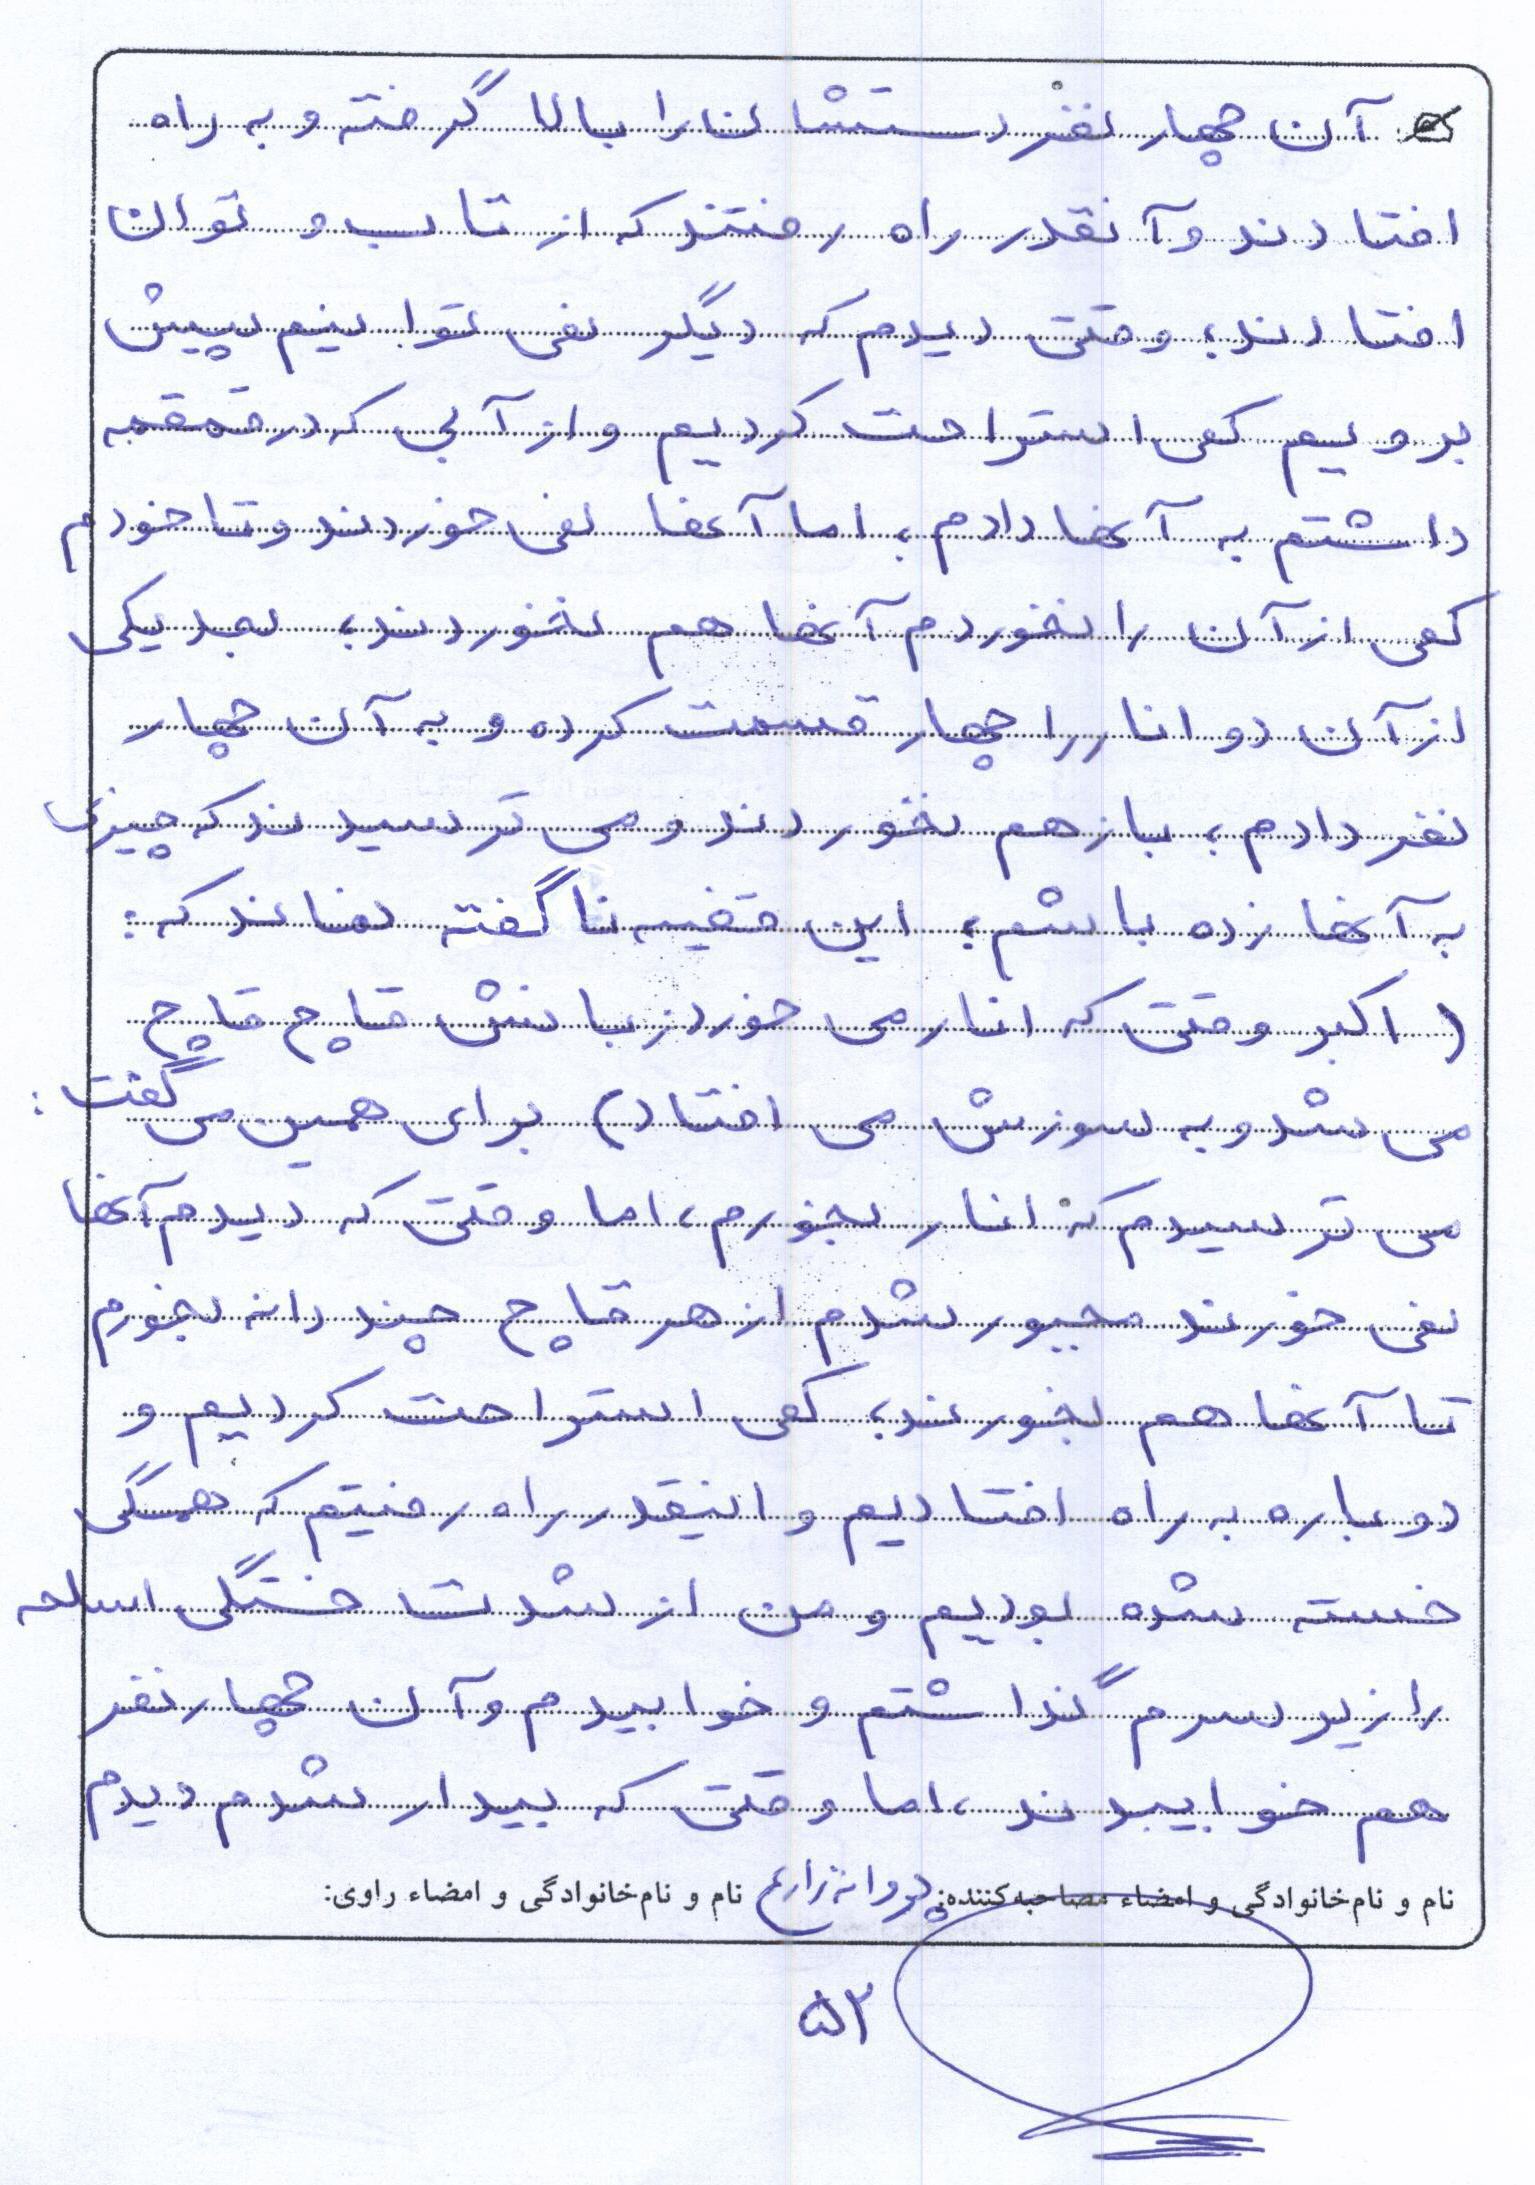 آن چهار نفر دستشان را بالا گرفته و به راه
افتادند و آنقدر راه رفتند که از تاب و توان
افتادند؛ وقتی دیدم که دیگر نمی توانیم پیش
برویم کمی استراحت کردیم و از آبی که در قمقمه
داشتم به آنها دادم؛ اما آنها نمی خوردند و تا خودم
کمی از آن را نخوردم آنها هم نخوردند؛ بعد یکی
از آن دو انار را چهار قسمت کرده و به آن چهار
نفر دادم؛ باز هم نخوردند و می ترسیدند که چیزی
به آنها زده باشم؛ این قضیه ناگفته نماند که:
(اکبر وقتی که انار می خورد زبانش قاچ قاچ
می شد و به سوزش می افتاد) برای همین می گفت:
می ترسیدم که انار بخورم، اما وقتی که دیدم آنها
نمی خورند مجبور شدم از هر قاچ چند دانه بخورم
تا آنها هم بخورند؛ کمی استراحت کردیم و
دوباره به راه افتادیم و اینقدر راه رفتیم که همگی
خسته شده بودیم و من از شدت خستگی اسلحه
را زیر سرم گذاشتم و خوابیدم و آن چهار نفر
هم خوابیدند، اما وقتی که بیدار شدم دیدم
نام و نام‌خانوادگی و امضاء مصاحبه‌کننده: پروانه زارع نام و نام‌خانوادگی و امضاء راوی:
۵۲